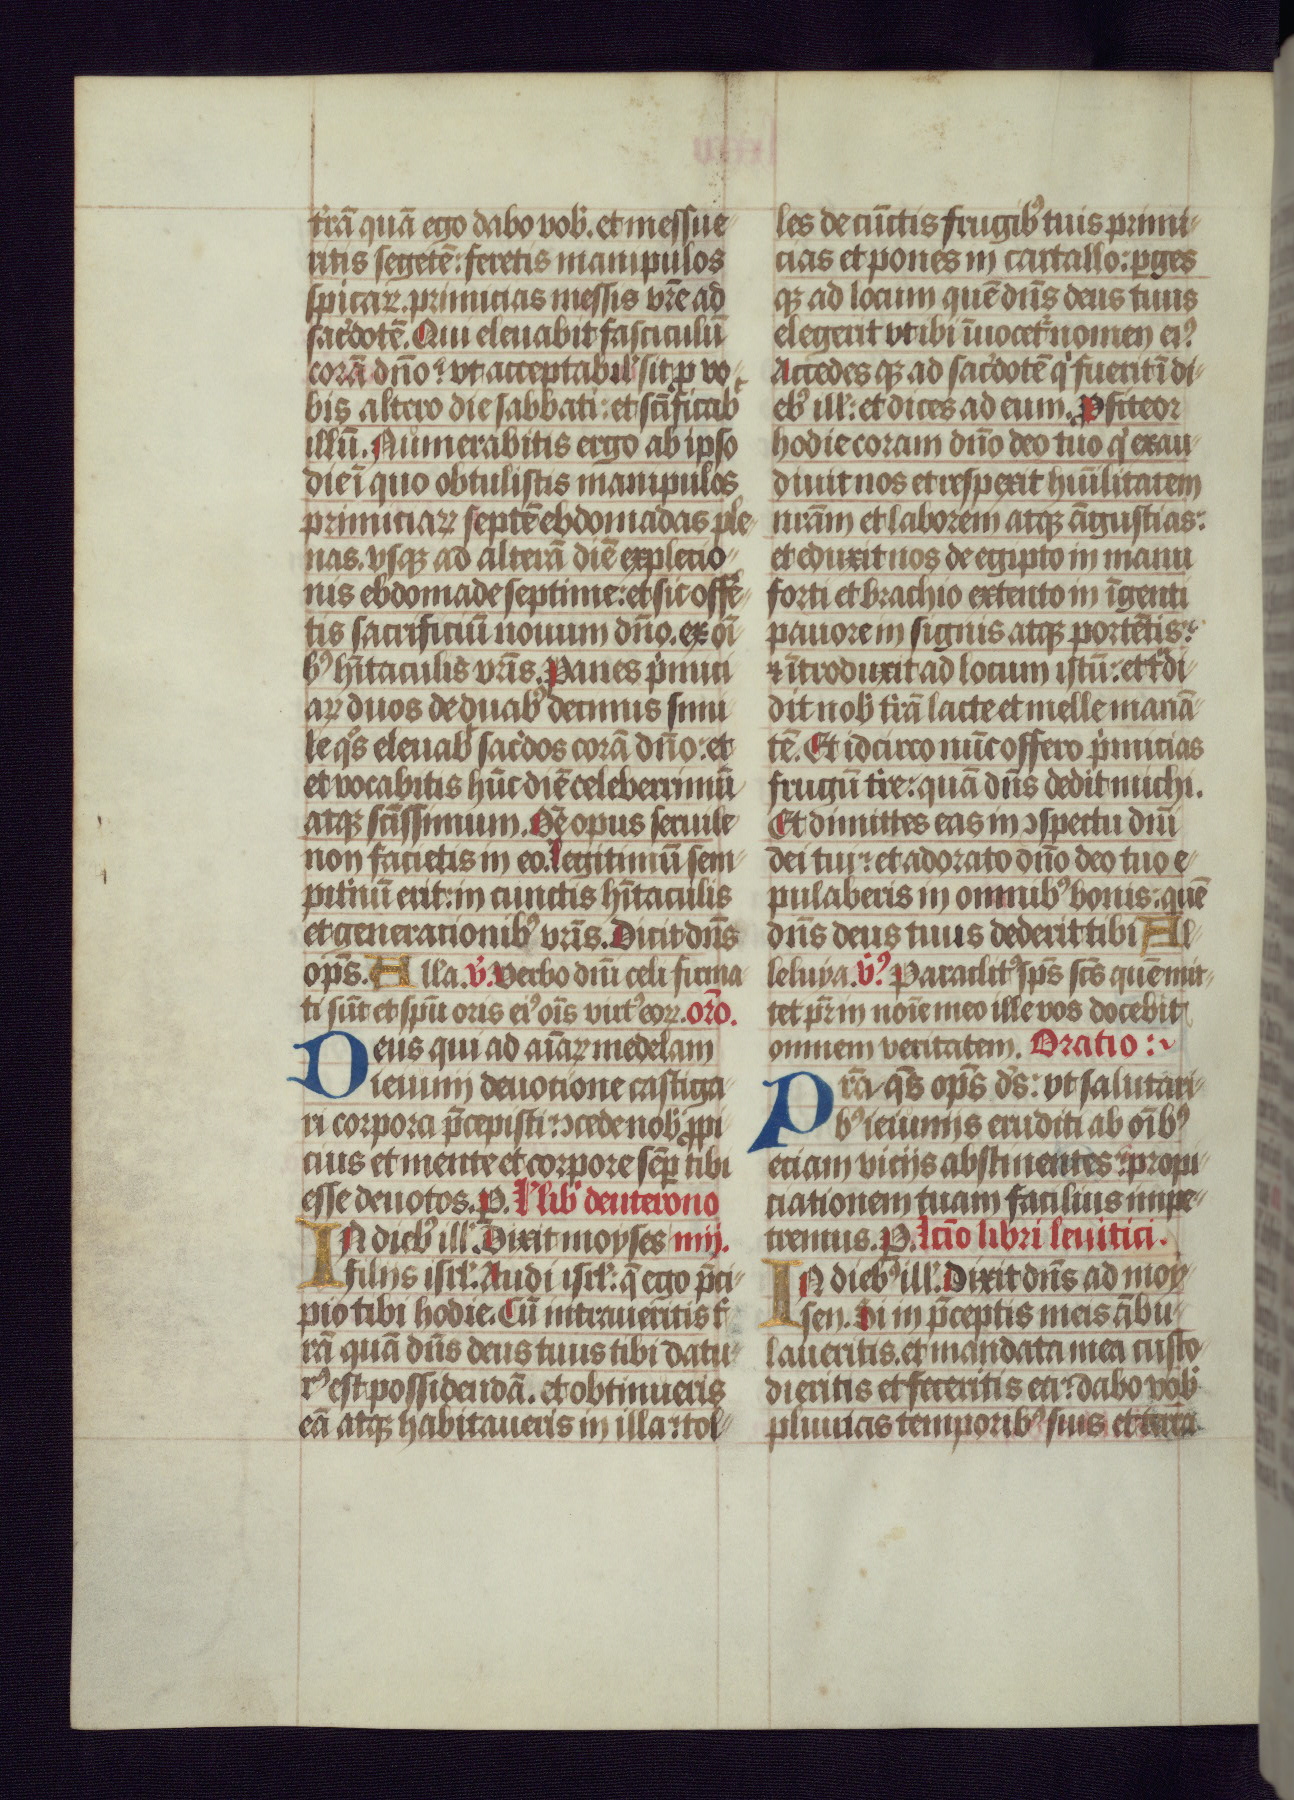 t̄rā quā ego dabo vob̄. et messue
ritis segetē: feretis manipulos
spicaꝝ. primicias messis vr̄e ad
sac̄dotē. Qui eleuabit fasciculū
corā dn̄o: vt acceptabil' sit ꝓ vo
bis altero die sabbati: et sc̄ificab'
illū. Numerabitis ergo ab ipso
die ī quo obtulistis manipulos
primiciaꝝ septē ebdomadas ple
nas. vsqꝫ ad alterā diē expletio
nis ebdomade septime: et sic offe
tis sacrificiū nouum dn̄o. ex oī
bꝰ hītaculis vr̄is. Panes p̄mici
aꝝ duos de duabꝰ decimis simi
le qͦs eleuab' sac̄dos corā dn̄o: et
et vocabitis hūc diē celeberrimū
atqꝫ scīssimum. Oē opus seruile
non facietis in eo. legitimū sem
pit̄nū erit: in cunctis hītaculis
et generacionibꝰ vr̄is. Dicit dn̄s
op̄s. Alla. v̄. Verbo dn̄i celi firma
ti sūt et sp̄u oris eiꝰ oīs virtꝰ eoꝝ. or̄o.
Deus qui ad aīaꝝ medelam
ieiunii deuotione castiga
ri corpora p̄cepisti: ꝯcede nob̄ ꝓpi
cius et mente et corpore sēꝑ tibi
esse deuotos. P. l' lib' deuterono
IN diebꝰ ill'. Dixit moyses mij.
filijs isrl'. Audi isrl': q̄ ego p̄ci
pio tibi hodie. Cū intraueritis t̄
rā quā dn̄s deus tuus tibi datu
rꝰ est possidendā. et obtinueris
eā atqꝫ habitaueris in illa: tol
les de cūctis frugibꝰ tuis primi
cias et pones in cartallo: ꝑges
qꝫ ad locum quē dn̄s deus tuus
elegerit vt ibi īuocet̄ nomen eiꝰ
Accedes qꝫ ad sac̄dotē qͥ fuerit ī di
ebꝰ ill': et dices ad eum. Ꝓfiteor
hodie coram dn̄o deo tuo qͥ exau
diuit nos et respexit hūilitatem
nr̄am et laborem atqꝫ āgustias:
et eduxit nos de egipto in manu
forti et brachio extento in īgenti
pauore in signis atqꝫ portētis:
⁊ ītroduxit ad locum istū: et t̄di
dit nob̄ t̄rā lacte et melle manā
tē. Et idcirco nūc offero p̄micias
frugū t̄re: quā dn̄s dedit michi.
Et dimittes eas in ꝯspectu dn̄i
dei tui: et adorato dn̄o deo tuo e
pulaberis in omnibꝰ bonis: quē
dn̄s deus tuus dederit tibi Al
leluya. v̄ꝰ Paraclitꝰ sp̄s sc̄s quē mit
tet pr̄ in noīe meo ille vos docebit
omnem veritatem. Oratio :~
Pr̄a qs̄ op̄s d̄s: vt salutari
bꝰ ieiuniis eruditi ab oībꝰ
eciam viciis abstinentes: propi
ciationem tuam facilius impe
tremus. P. lccīo libri leuitici.
IN diebꝰ ill'. Dixit dn̄s ad moy
sen. Si in p̄ceptis meis ābu
laueritis. et mandata mea custo
dieritis et feceritis ea: dabo vob̄
pluuias temporibꝰ suis et terra